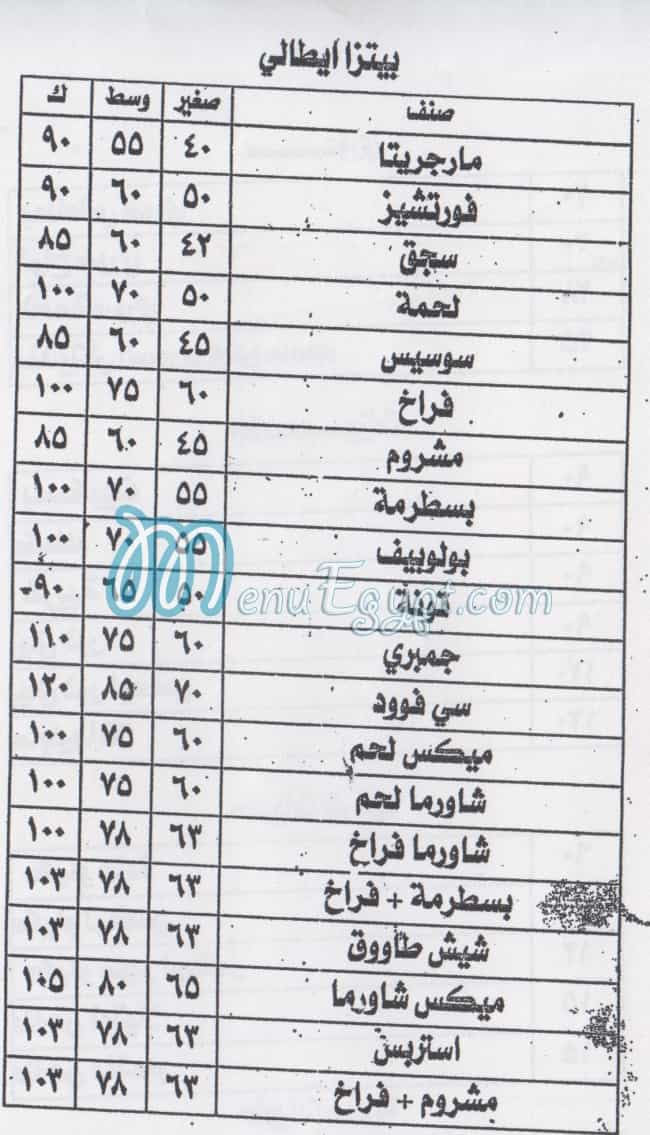 بيتزا ايطالي
صنف صغير وسط ك
مارجريتا ٤٠ ٥٥ ٩٠
فورتشيز ٥٠ ٦٠ ٩٠
سجق ٤٢ ٦٠ ٨٥
لحمة ٥٠ ٧٠ ١٠٠
سوسيس ٤٥ ٦٠ ٨٥
فراخ ٦٠ ٧٥ ١٠٠
مشروم ٤٥ ٦٠ ٨٥
بسطرمة ٥٥ ٧٠ ١٠٠
بولوبيف ٥٥ ٧٠ ١٠٠
تونة ٥٠ ٦٥ ٩٠
MenuEgypt.com
جمبري ٦٠ ٧٥ ١١٠
سي فوود ٧٠ ٨٥ ١٢٠
ميكس لحم ٦٠ ٧٥ ١٠٠
شاورما لحم ٦٠ ٧٥ ١٠٠
شاورما فراخ ٦٣ ٧٨ ١٠٠
بسطرمة + فراخ ٦٣ ٧٨ ١٠٣
شيش طاووق ٦٣ ٧٨ ١٠٣
ميكس شاورما ٦٥ ٨٠ ١٠٥
استربس ٦٣ ٧٨ ١٠٣
مشروم + فراخ ٦٣ ٧٨ ١٠٣